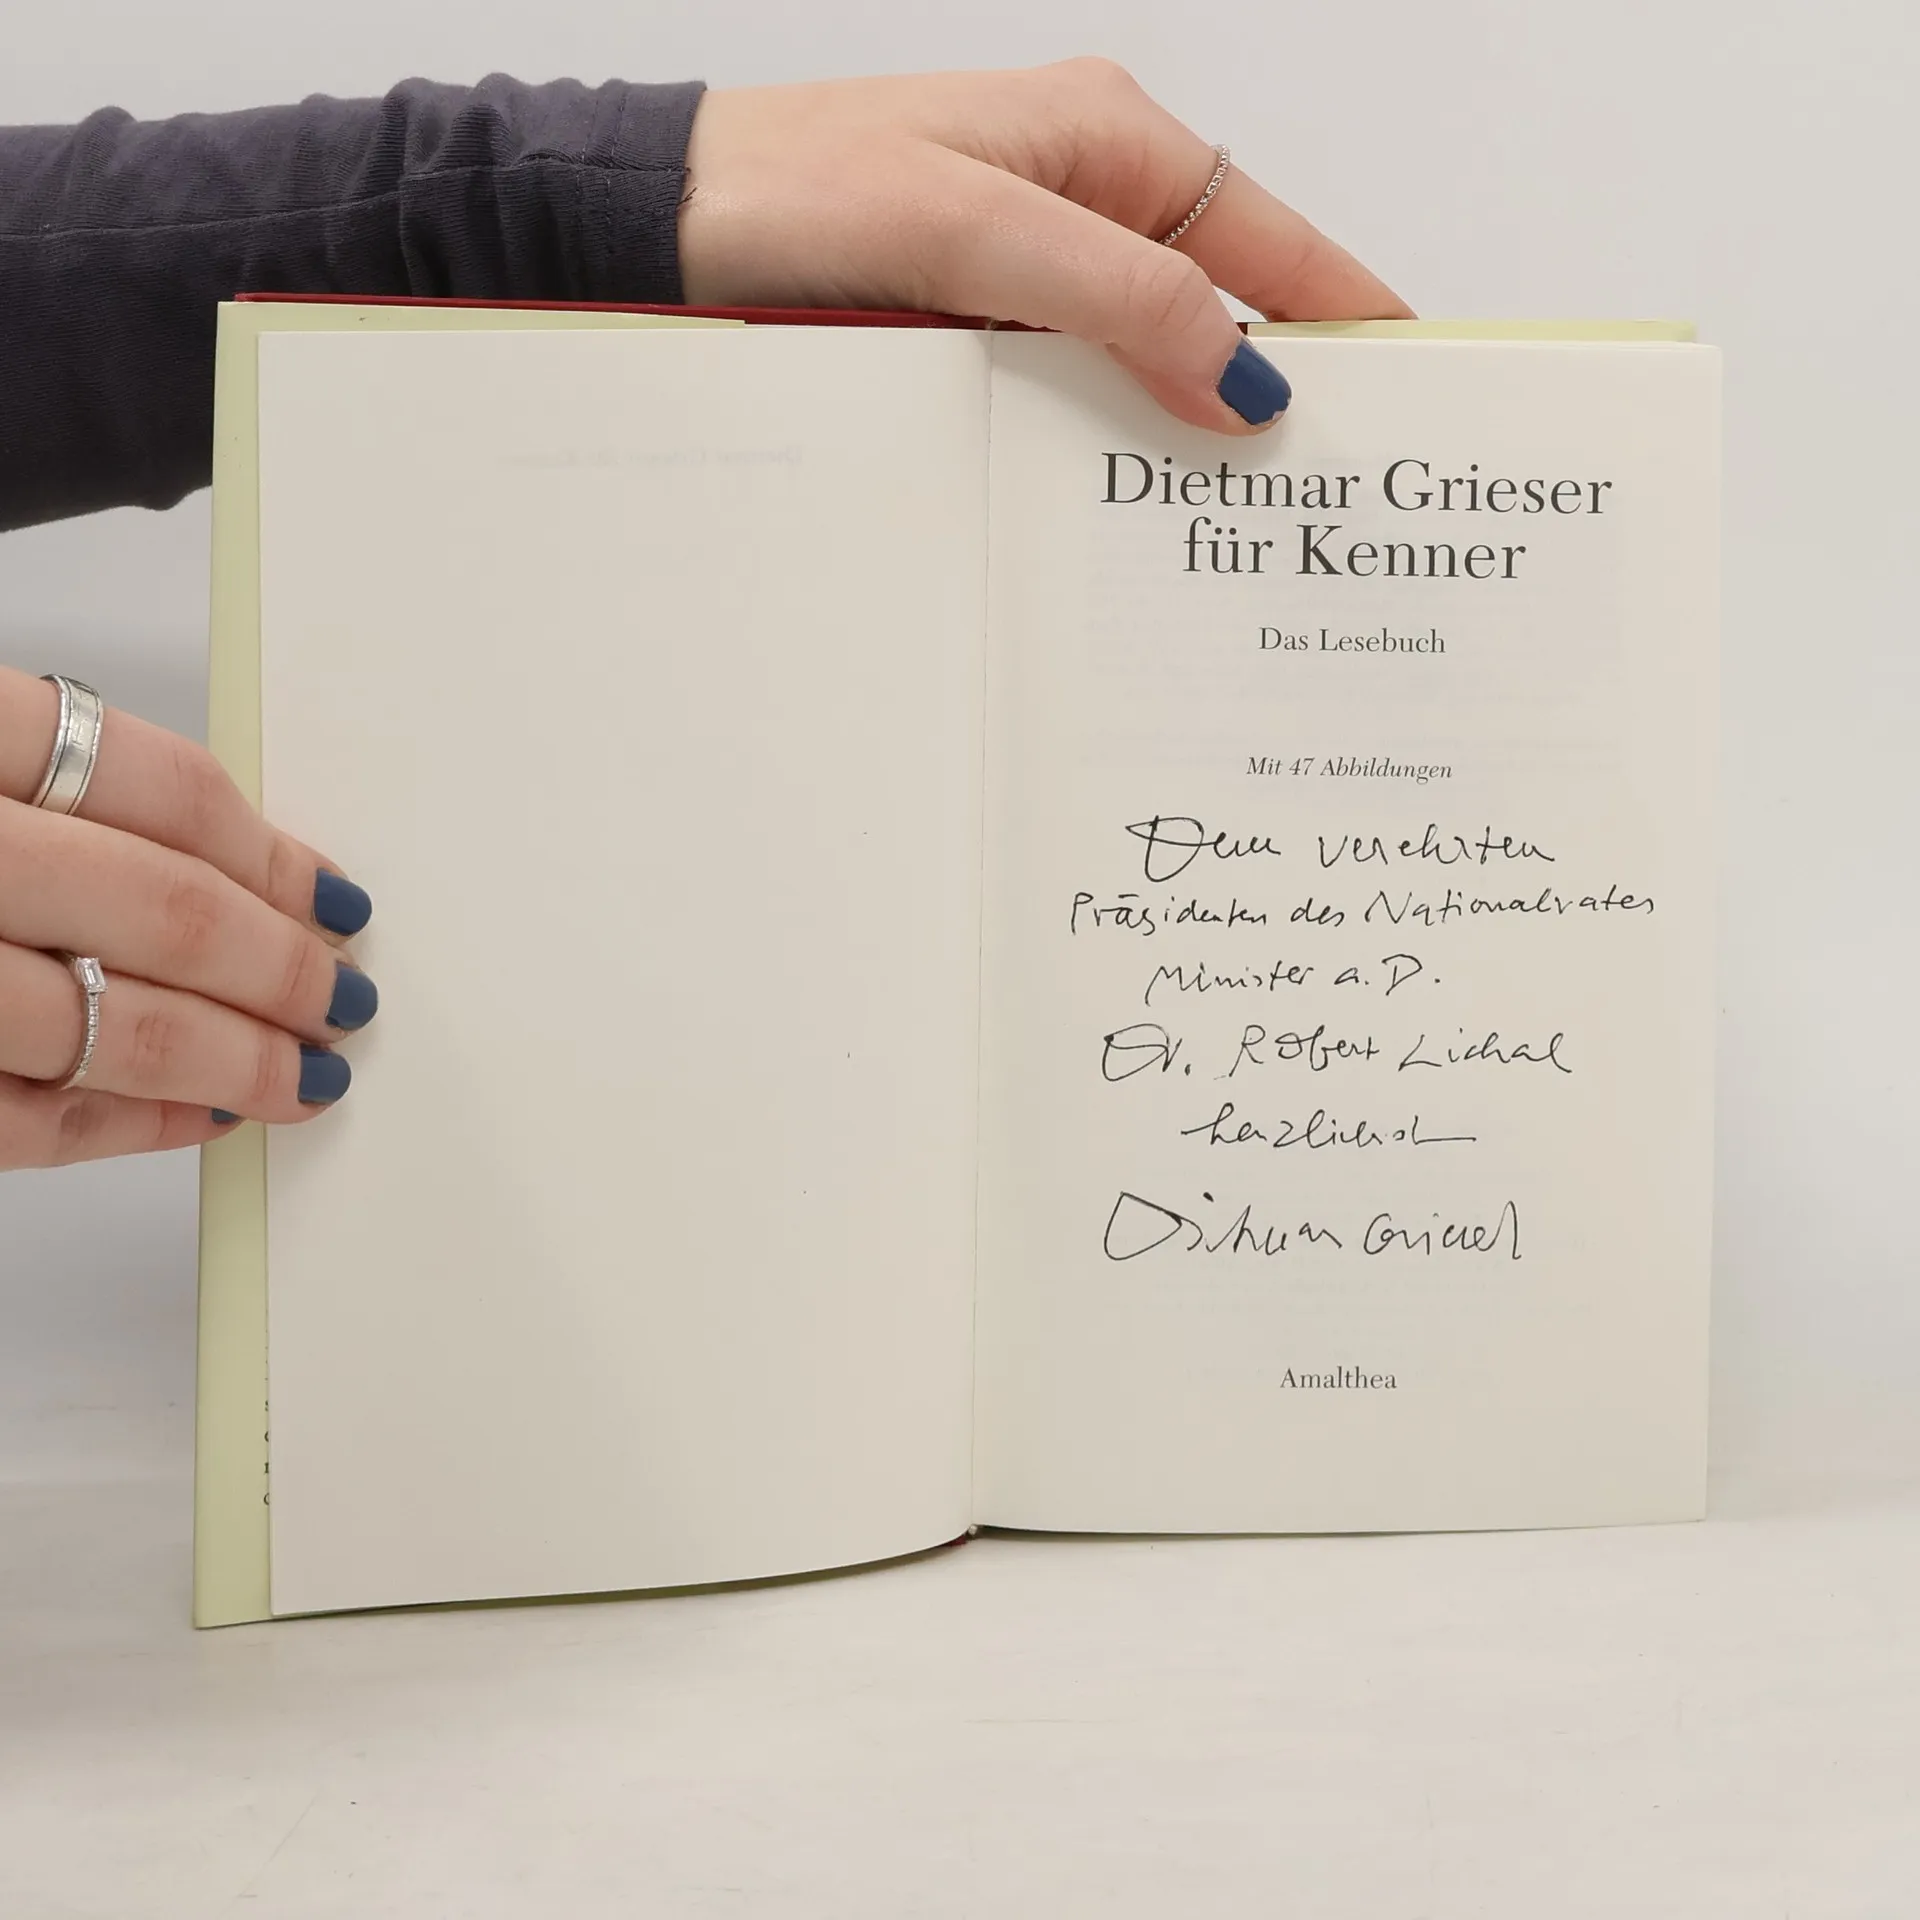 Dietmar Grieser
für Kenner
Das Lesebuch
Mit 47 Abbildungen
Dem verehrten
Präsidenten des Nationalrates
Minister a. D.
Dr. Robert Lichal
herzlichst
Dietmar Grieser
Amalthea